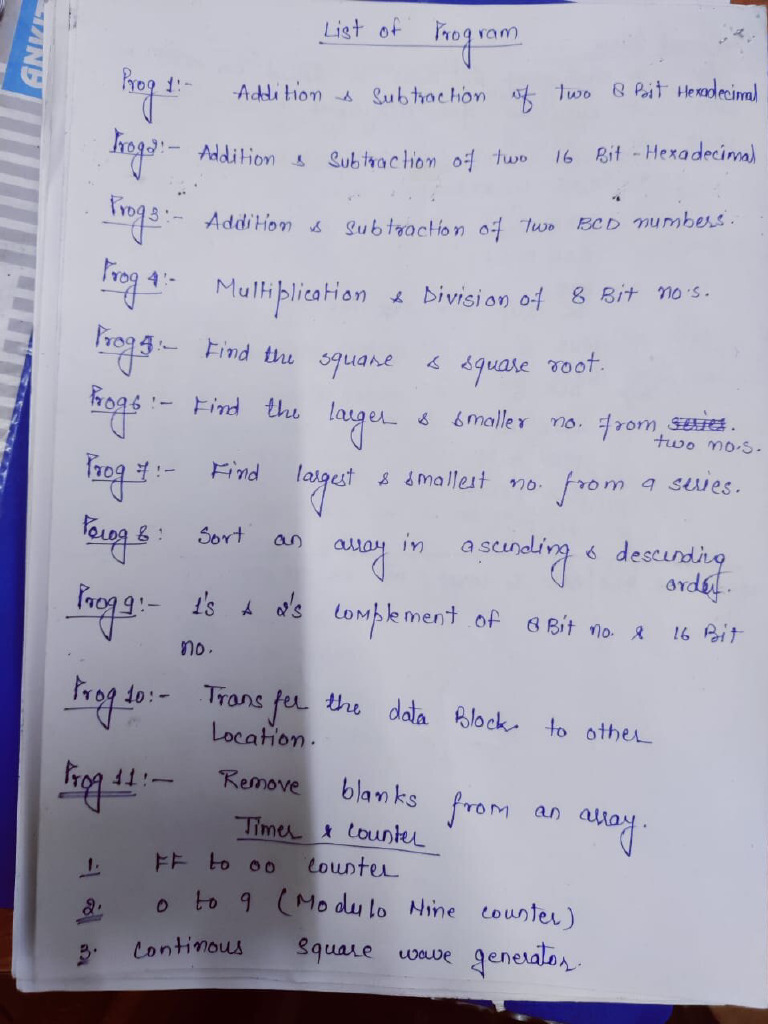 ANKIT
List of Program
Prog 1:- Addition & Subtraction of two 8 Bit Hexadecimal
Prog2:- Addition & Subtraction of two 16 Bit - Hexadecimal
Prog3:- Addition & Subtraction of two BCD numbers.
Prog 4:- Multiplication & Division of 8 Bit no's.
Prog5:- Find the square & square root.
Prog6:- Find the larger & smaller no. from series.
two no.s.
Prog 7:- Find largest & smallest no. from a series.
Prog 8: Sort an array in ascending & descending
order.
Prog 9:- 1's & 2's complement of 8 Bit no. & 16 Bit
no.
Prog 10:- Transfer the data Block to other
Location.
Prog 11:- Remove blanks from an array.
Timer & counter
1. FF to 00 counter
2. 0 to 9 (Modulo Nine counter)
3. Continous Square wave generator.